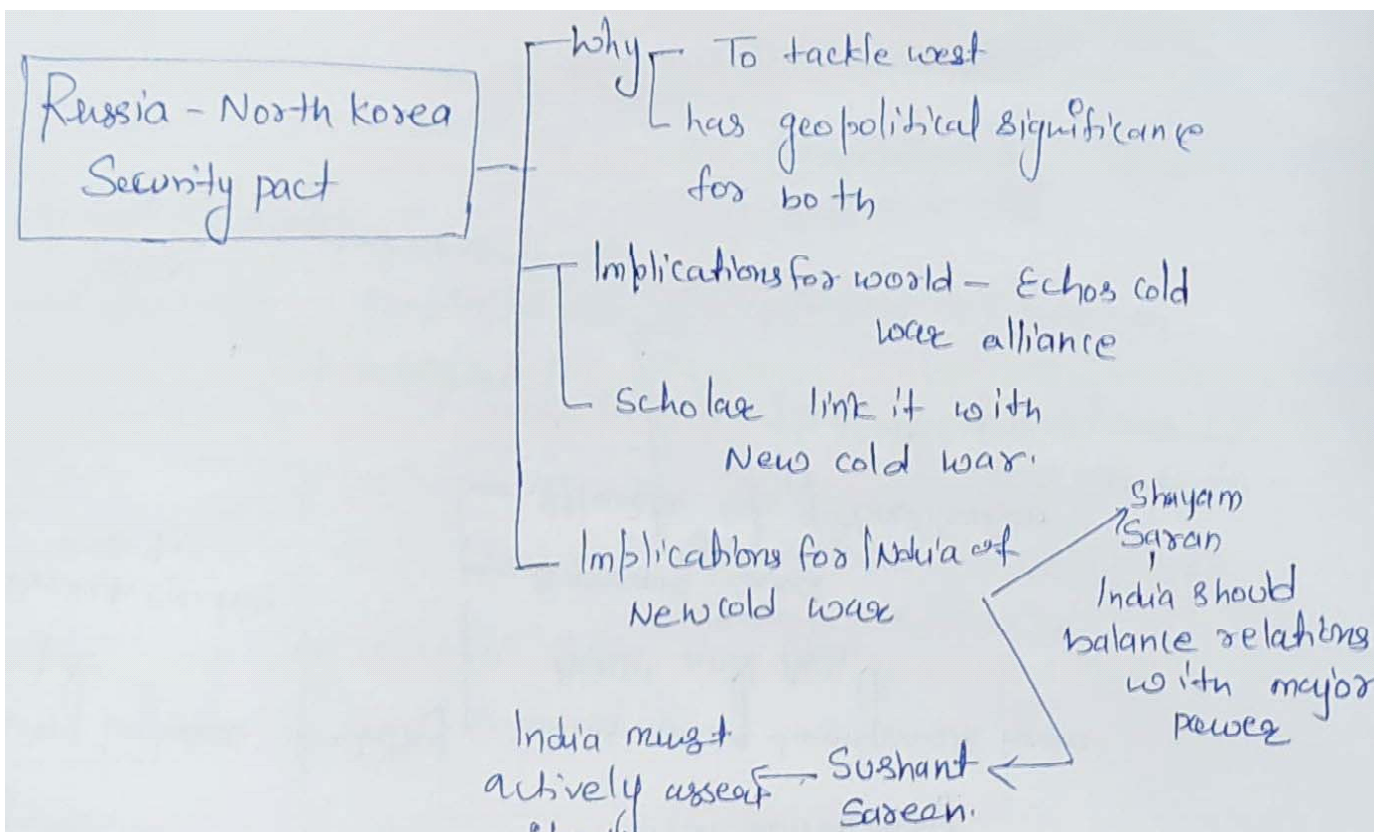 Russia - North Korea
Security pact
Why
To tackle west
has geopolitical significance
for both
Implications for world - Echos cold
war alliance
Scholar link it with
New cold war.
Implications for India of
New cold war
Shayam
Saran
India should
balance relations
with major
power
Sushant
Sareen.
India must
actively assert